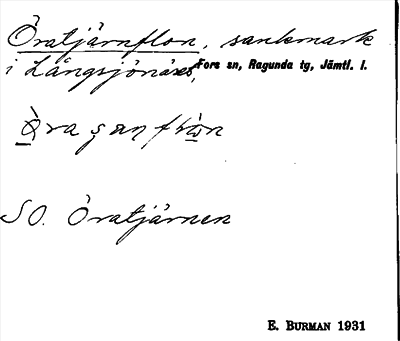 Öratjärnflon, sankmark
i Långsjönäset, Fors sn, Ragunda tg, Jämtl. l.
SO. Öratjärnen
E. BURMAN 1931